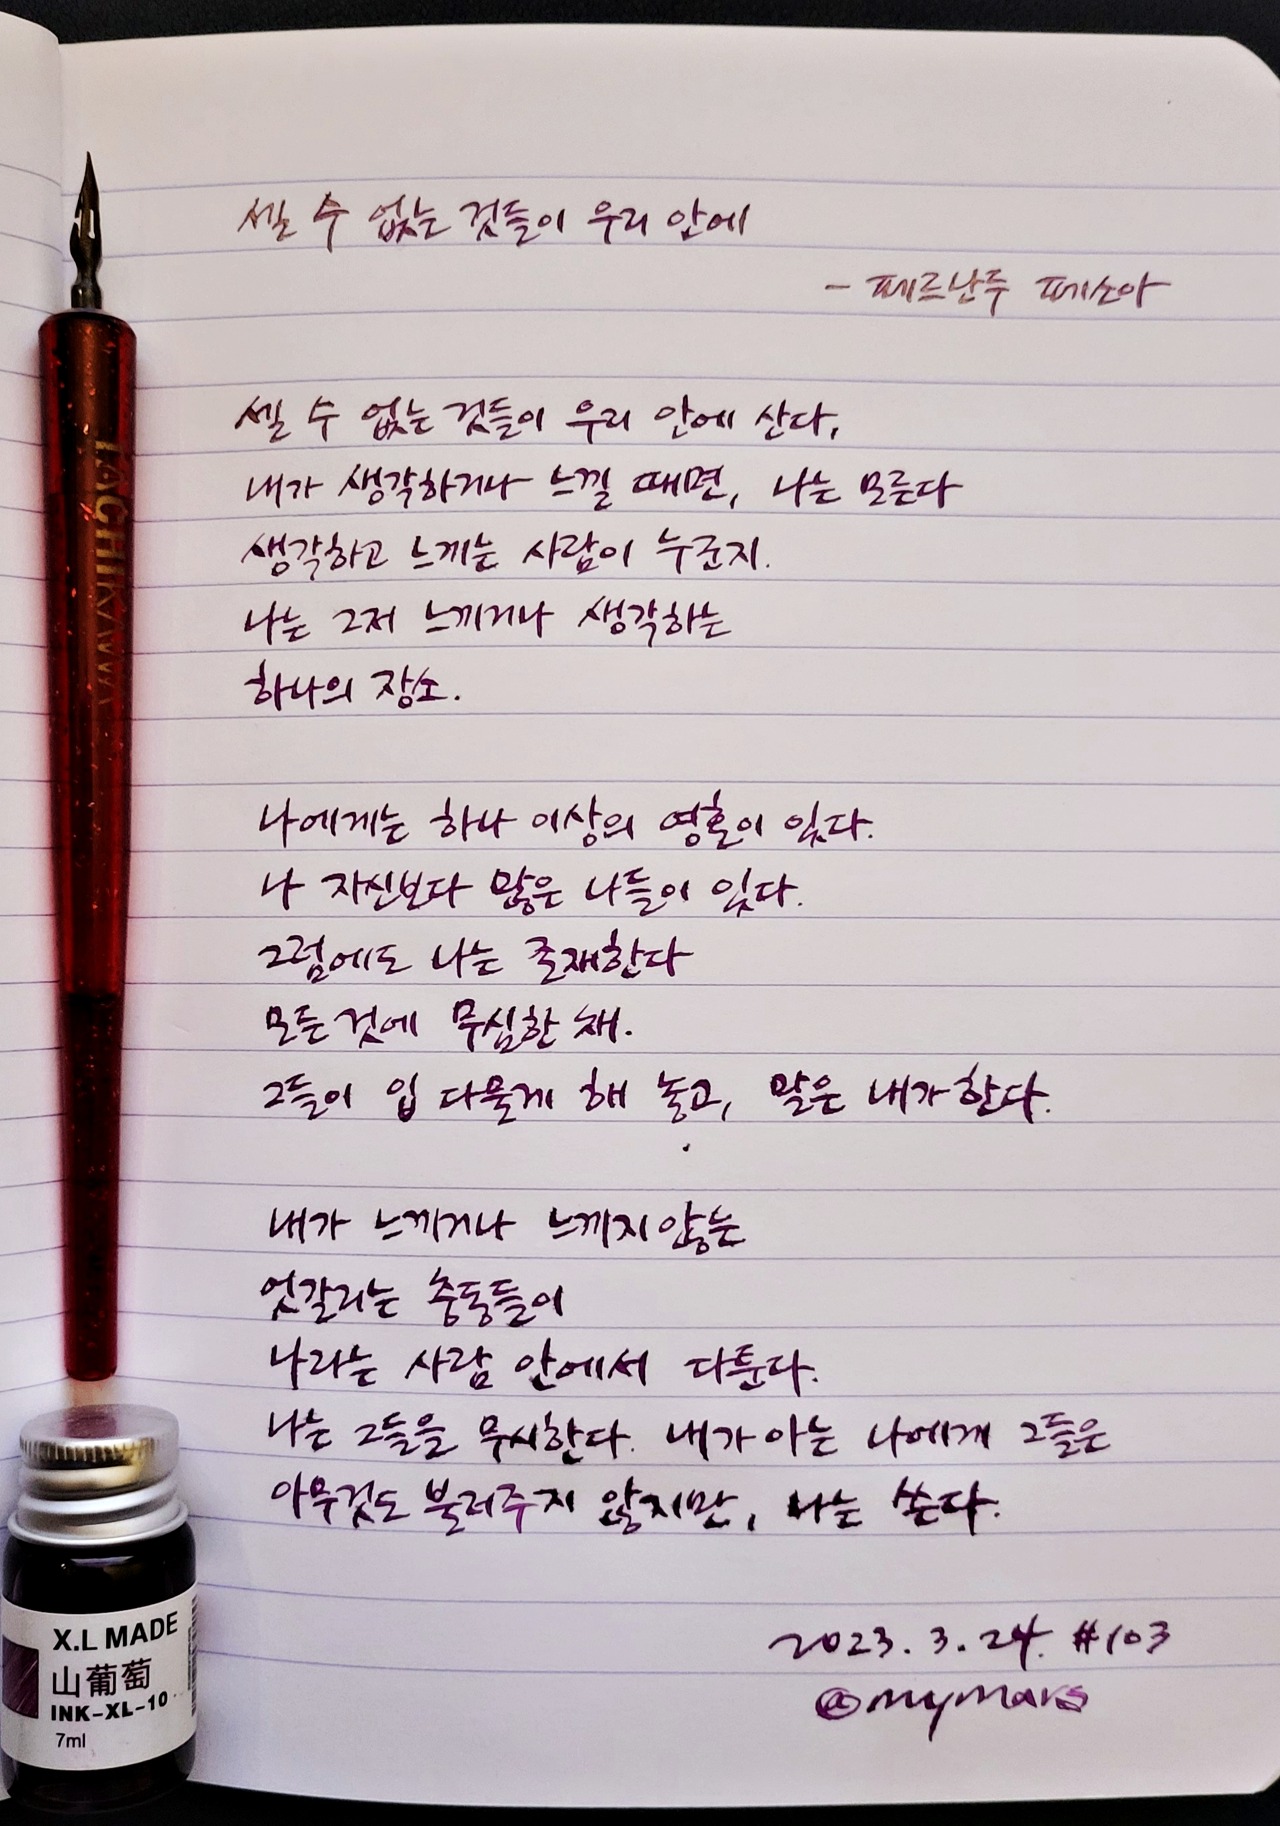 셀 수 없는 것들이 우리 안에
- 페르난두 페소아
셀 수 없는 것들이 우리 안에 산다,
내가 생각하거나 느낄 때면, 나는 모른다
생각하고 느끼는 사람이 누군지.
나는 그저 느끼거나 생각하는
하나의 장소.
나에게는 하나 이상의 영혼이 있다.
나 자신보다 많은 나들이 있다.
그럼에도 나는 존재한다
모든 것에 무심한 채.
그들이 입 다물게 해 놓고, 말은 내가 한다.
내가 느끼거나 느끼지 않는
엇갈리는 충동들이
나라는 사람 안에서 다툰다.
나는 그들을 무시한다. 내가 아는 나에게 그들은
아무것도 불러주지 않지만, 나는 쓴다.
2023.3.24. #103
@mymars
TACHIKAWA
X.L MADE
山葡萄
INK-XL-10
7ml